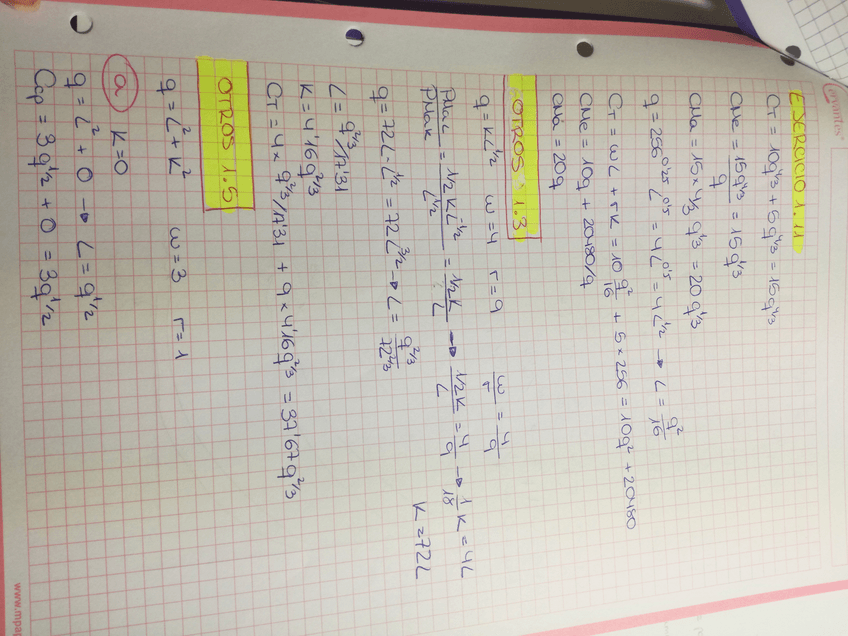 Cervantes
EJERCICIO 1.11
CT = 10q^1/3 + 5q^1/3 = 15q^1/3
CMe = 15q^4/3 / q = 15q^1/3
CMa = 15 x 4/3 q^1/3 = 20q^1/3
q = 256^0'25 L^0'5 = 4L^0'5 = 4L^1/2 → L = q²/16
CT = wL + 5K = 10 q²/16 + 5 x 256 = 10q² + 20480
CMe = 10q + 20480/q
CMa = 20q
OTROS 1.3
q = KL^1/2 w=4 r=9 w/r = 4/9
PMaL/PMaK = 1/2KL^-1/2 / L^1/2 = 1/2K / L → 1/2K / L = 4/9 → 1/18 K = 4L
K = 72L
q = 72L · L^1/2 = 72L^3/2 → L = q^2/3 / 72^2/3
L = q^2/3/17'31
K = 4'16q^2/3
CT = 4 x q^2/3/17'31 + 9 x 4'16q^2/3 = 37'67q^2/3
OTROS 1.5
q = L² + K² w = 3 r = 1
a K=0
q = L² + 0 → L = q^1/2
CCP = 3q^1/2 + 0 = 3q^1/2